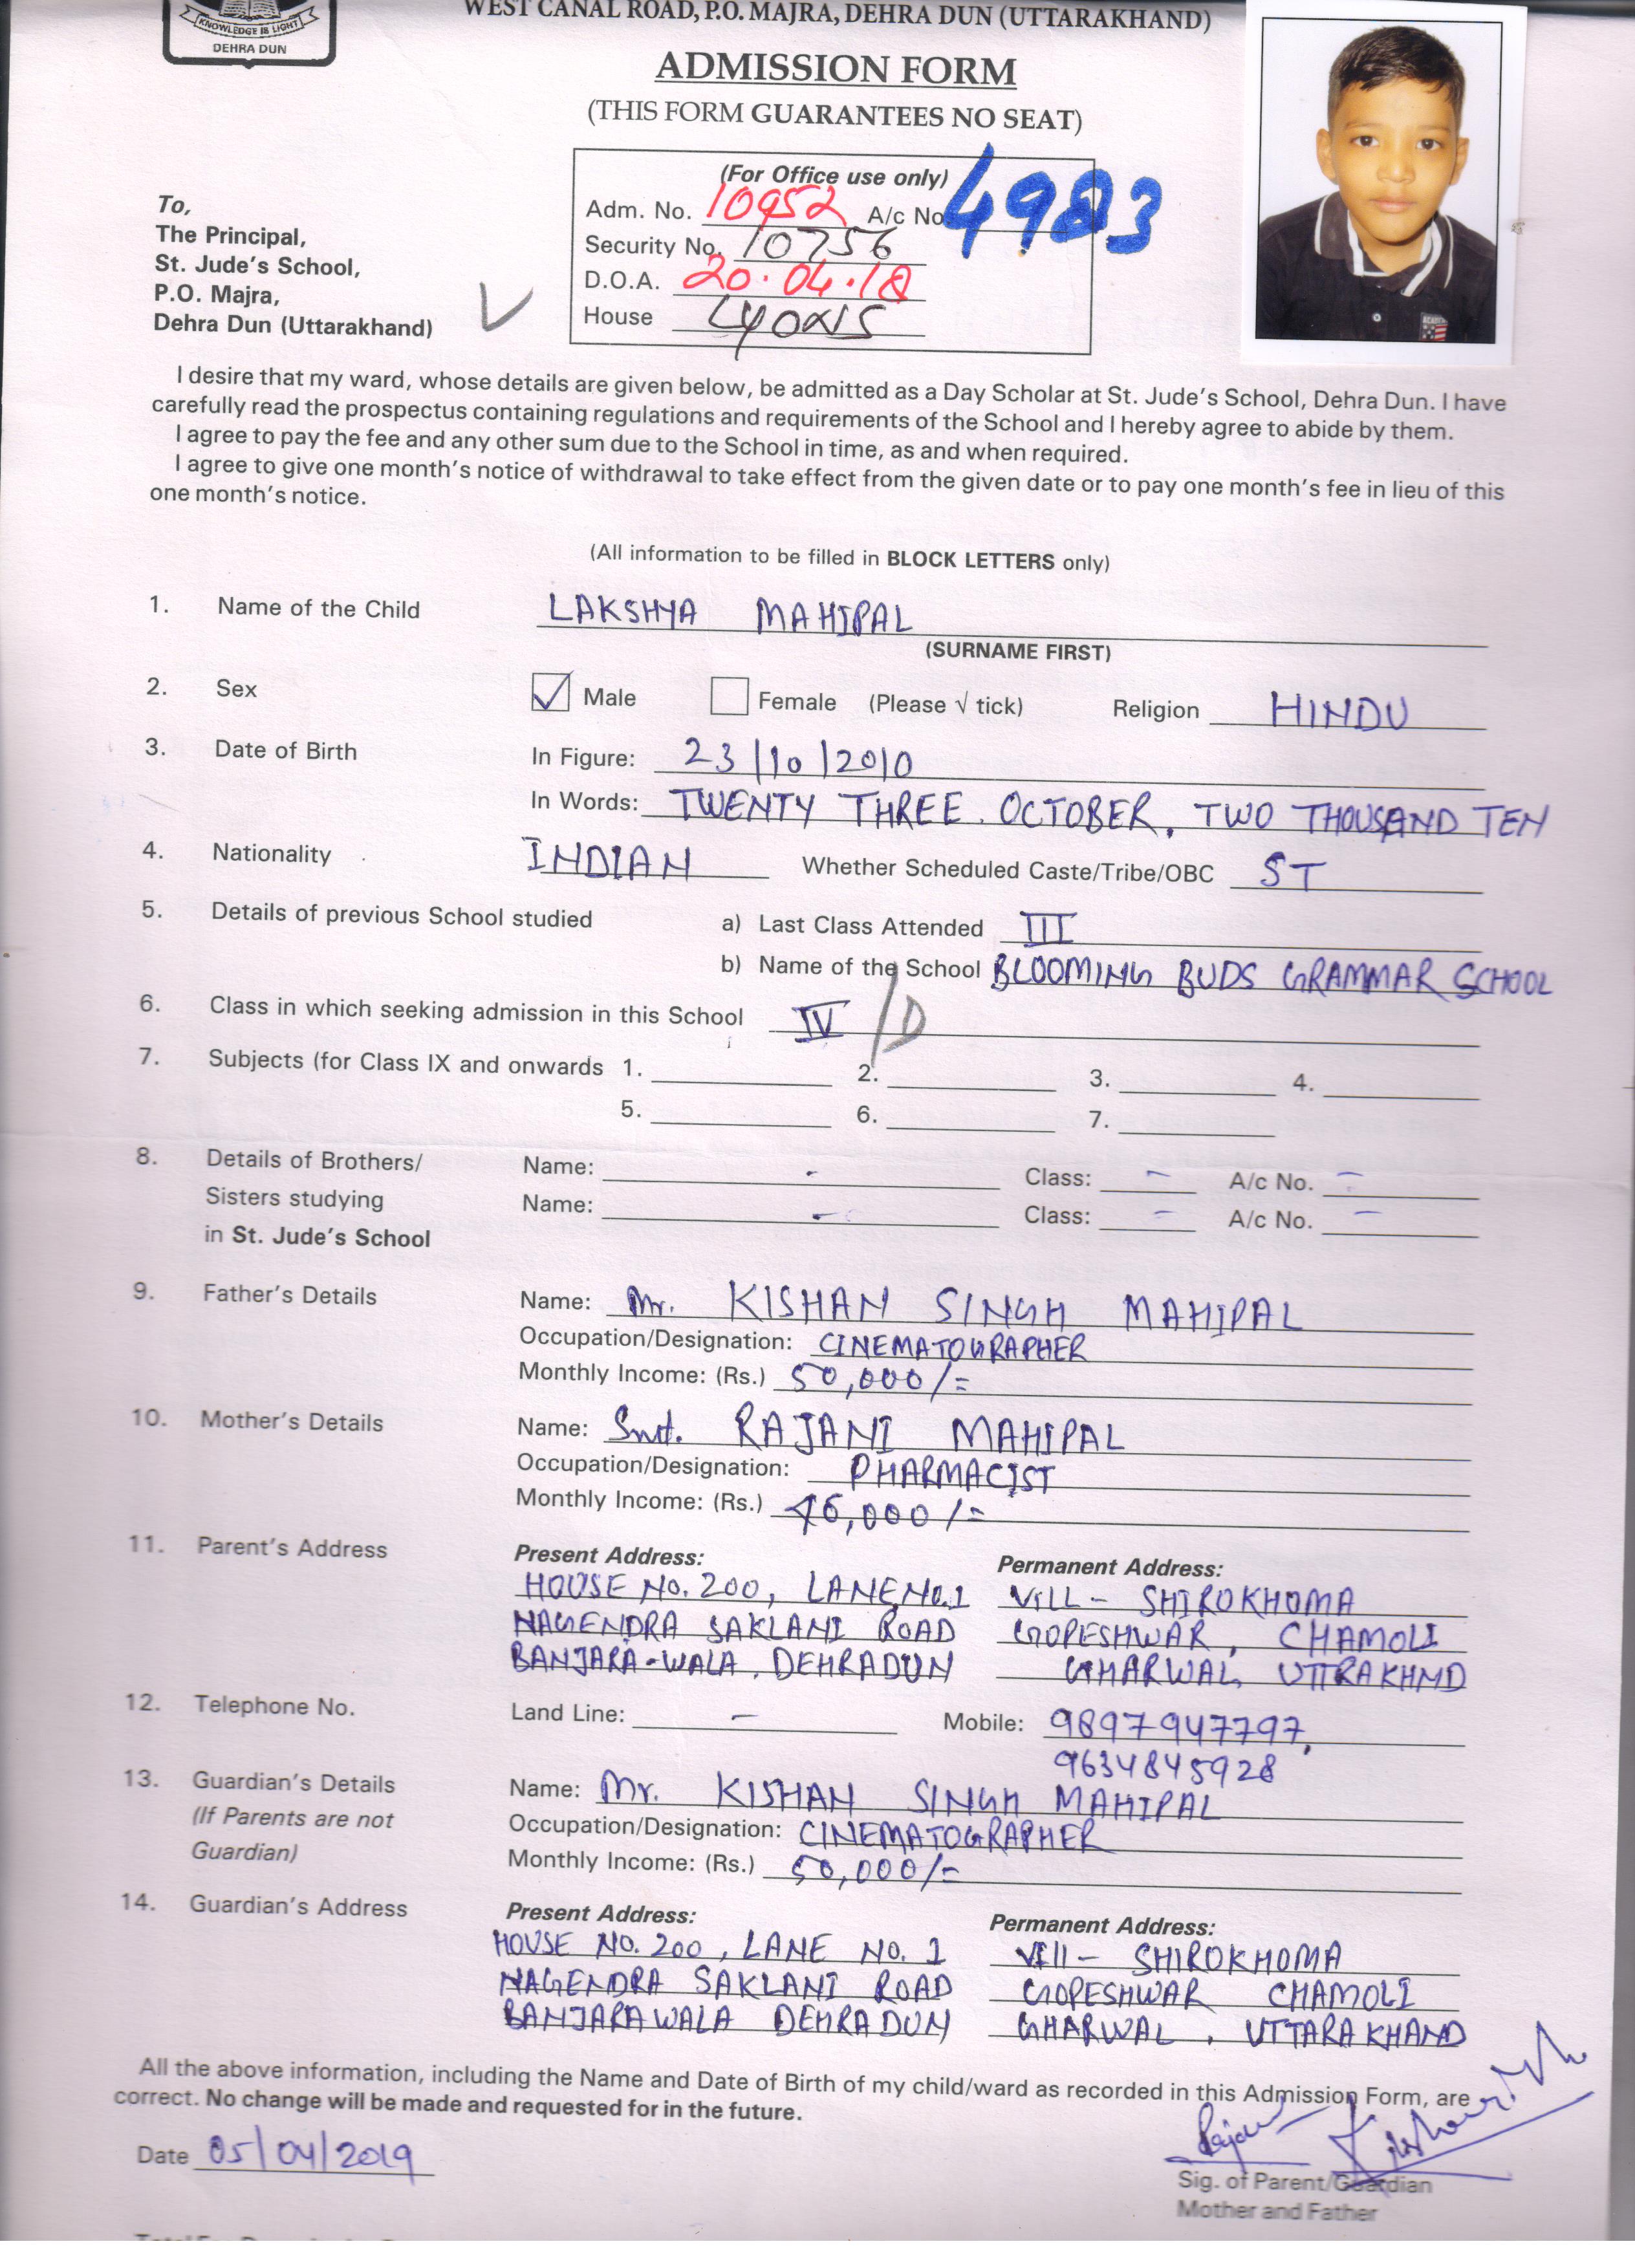 KNOWLEDGE IS LIGHT
DEHRA DUN
WEST CANAL ROAD, P.O. MAJRA, DEHRA DUN (UTTARAKHAND)
ADMISSION FORM
(THIS FORM GUARANTEES NO SEAT)
(For Office use only)
Adm. No. 10952 A/c No 4983
Security No. 10756
D.O.A. 20.04.18
House Lyons
To,
The Principal,
St. Jude's School,
P.O. Majra,
Dehra Dun (Uttarakhand)
I desire that my ward, whose details are given below, be admitted as a Day Scholar at St. Jude's School, Dehra Dun. I have
carefully read the prospectus containing regulations and requirements of the School and I hereby agree to abide by them.
I agree to pay the fee and any other sum due to the School in time, as and when required.
I agree to give one month's notice of withdrawal to take effect from the given date or to pay one month's fee in lieu of this
one month's notice.
(All information to be filled in BLOCK LETTERS only)
1. Name of the Child LAKSHYA MAHIPAL
(SURNAME FIRST)
2. Sex Male Female (Please √ tick) Religion HINDU
3. Date of Birth In Figure: 23/10/2010
In Words: TWENTY THREE. OCTOBER, TWO THOUSAND TEN
4. Nationality INDIAN Whether Scheduled Caste/Tribe/OBC ST
5. Details of previous School studied a) Last Class Attended III
b) Name of the School BLOOMING BUDS GRAMMAR SCHOOL
6. Class in which seeking admission in this School IV /D
7. Subjects (for Class IX and onwards 1. 2. 3. 4.
5. 6. 7.
8. Details of Brothers/ Name: - Class: - A/c No. -
Sisters studying Name: - Class: - A/c No. -
in St. Jude's School
9. Father's Details Name: Mr. KISHAN SINGH MAHIPAL
Occupation/Designation: CINEMATOGRAPHER
Monthly Income: (Rs.) 50,000/=
10. Mother's Details Name: Smt. RAJANI MAHIPAL
Occupation/Designation: PHARMACIST
Monthly Income: (Rs.)
11. Parent's Address Present Address: Permanent Address:
HOUSE NO. 200, LANE NO.1 VILL - SHIROKHOMA
NAGENDRA SAKLANI ROAD GOPESHWAR, CHAMOLI
BANJARA-WALA, DEHRADUN GHARWAL, UTTRAKHND
12. Telephone No. Land Line: - Mobile: 9897947797,
9634845928
13. Guardian's Details Name: Mr. KISHAN SINGH MAHIPAL
(If Parents are not Occupation/Designation: CINEMATOGRAPHER
Guardian) Monthly Income: (Rs.) 50,000/=
14. Guardian's Address Present Address: Permanent Address:
HOUSE NO. 200, LANE NO. 1 Vill - SHIROKHOMA
NAGENDRA SAKLANI ROAD GOPESHWAR CHAMOLI
BANJARAWALA DEHRADUN GHARWAL, UTTARAKHAND
All the above information, including the Name and Date of Birth of my child/ward as recorded in this Admission Form, are
correct. No change will be made and requested for in the future.
Date 05/04/2019
Sig. of Parent/Guardian
Mother and Father